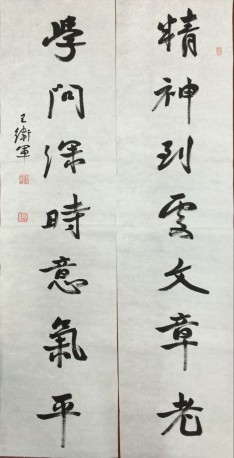 精神到處文章老
學問深時意氣平
王衛軍